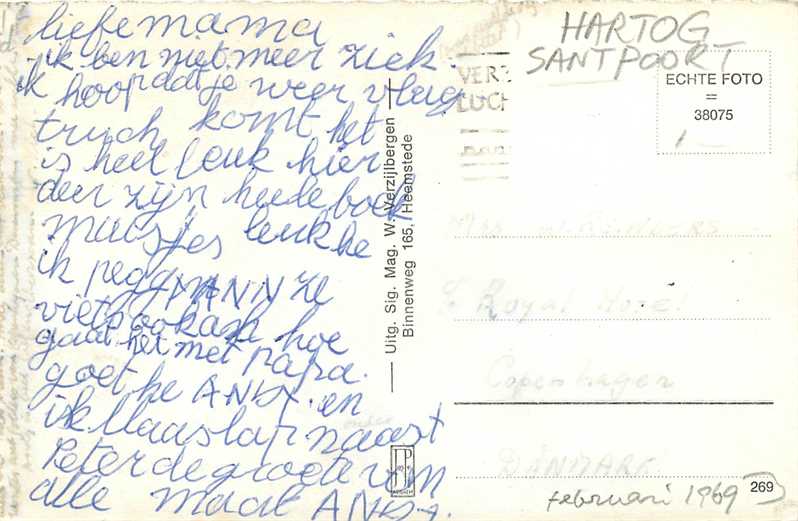 liefe mama
ik ben niet meer ziek.
ik hoop dat je weer vlag
truch komt het
is heel leuk hier
deer zijn heele boel
meisjes leuk he
ik peggy MANN ze
viets ook
gaat het met papa.
goet he ANDY. en
ik slaap naast
Peter de groete vom
alle maal ANDY.
HARTOG
SANTPOORT
ECHTE FOTO
=
38075
Uitg. Sig. Mag. W. Verzijlbergen
Binnenweg 165, Heemstede
Royal Hotel
Copenhagen
DANMARK
februari 1969
269